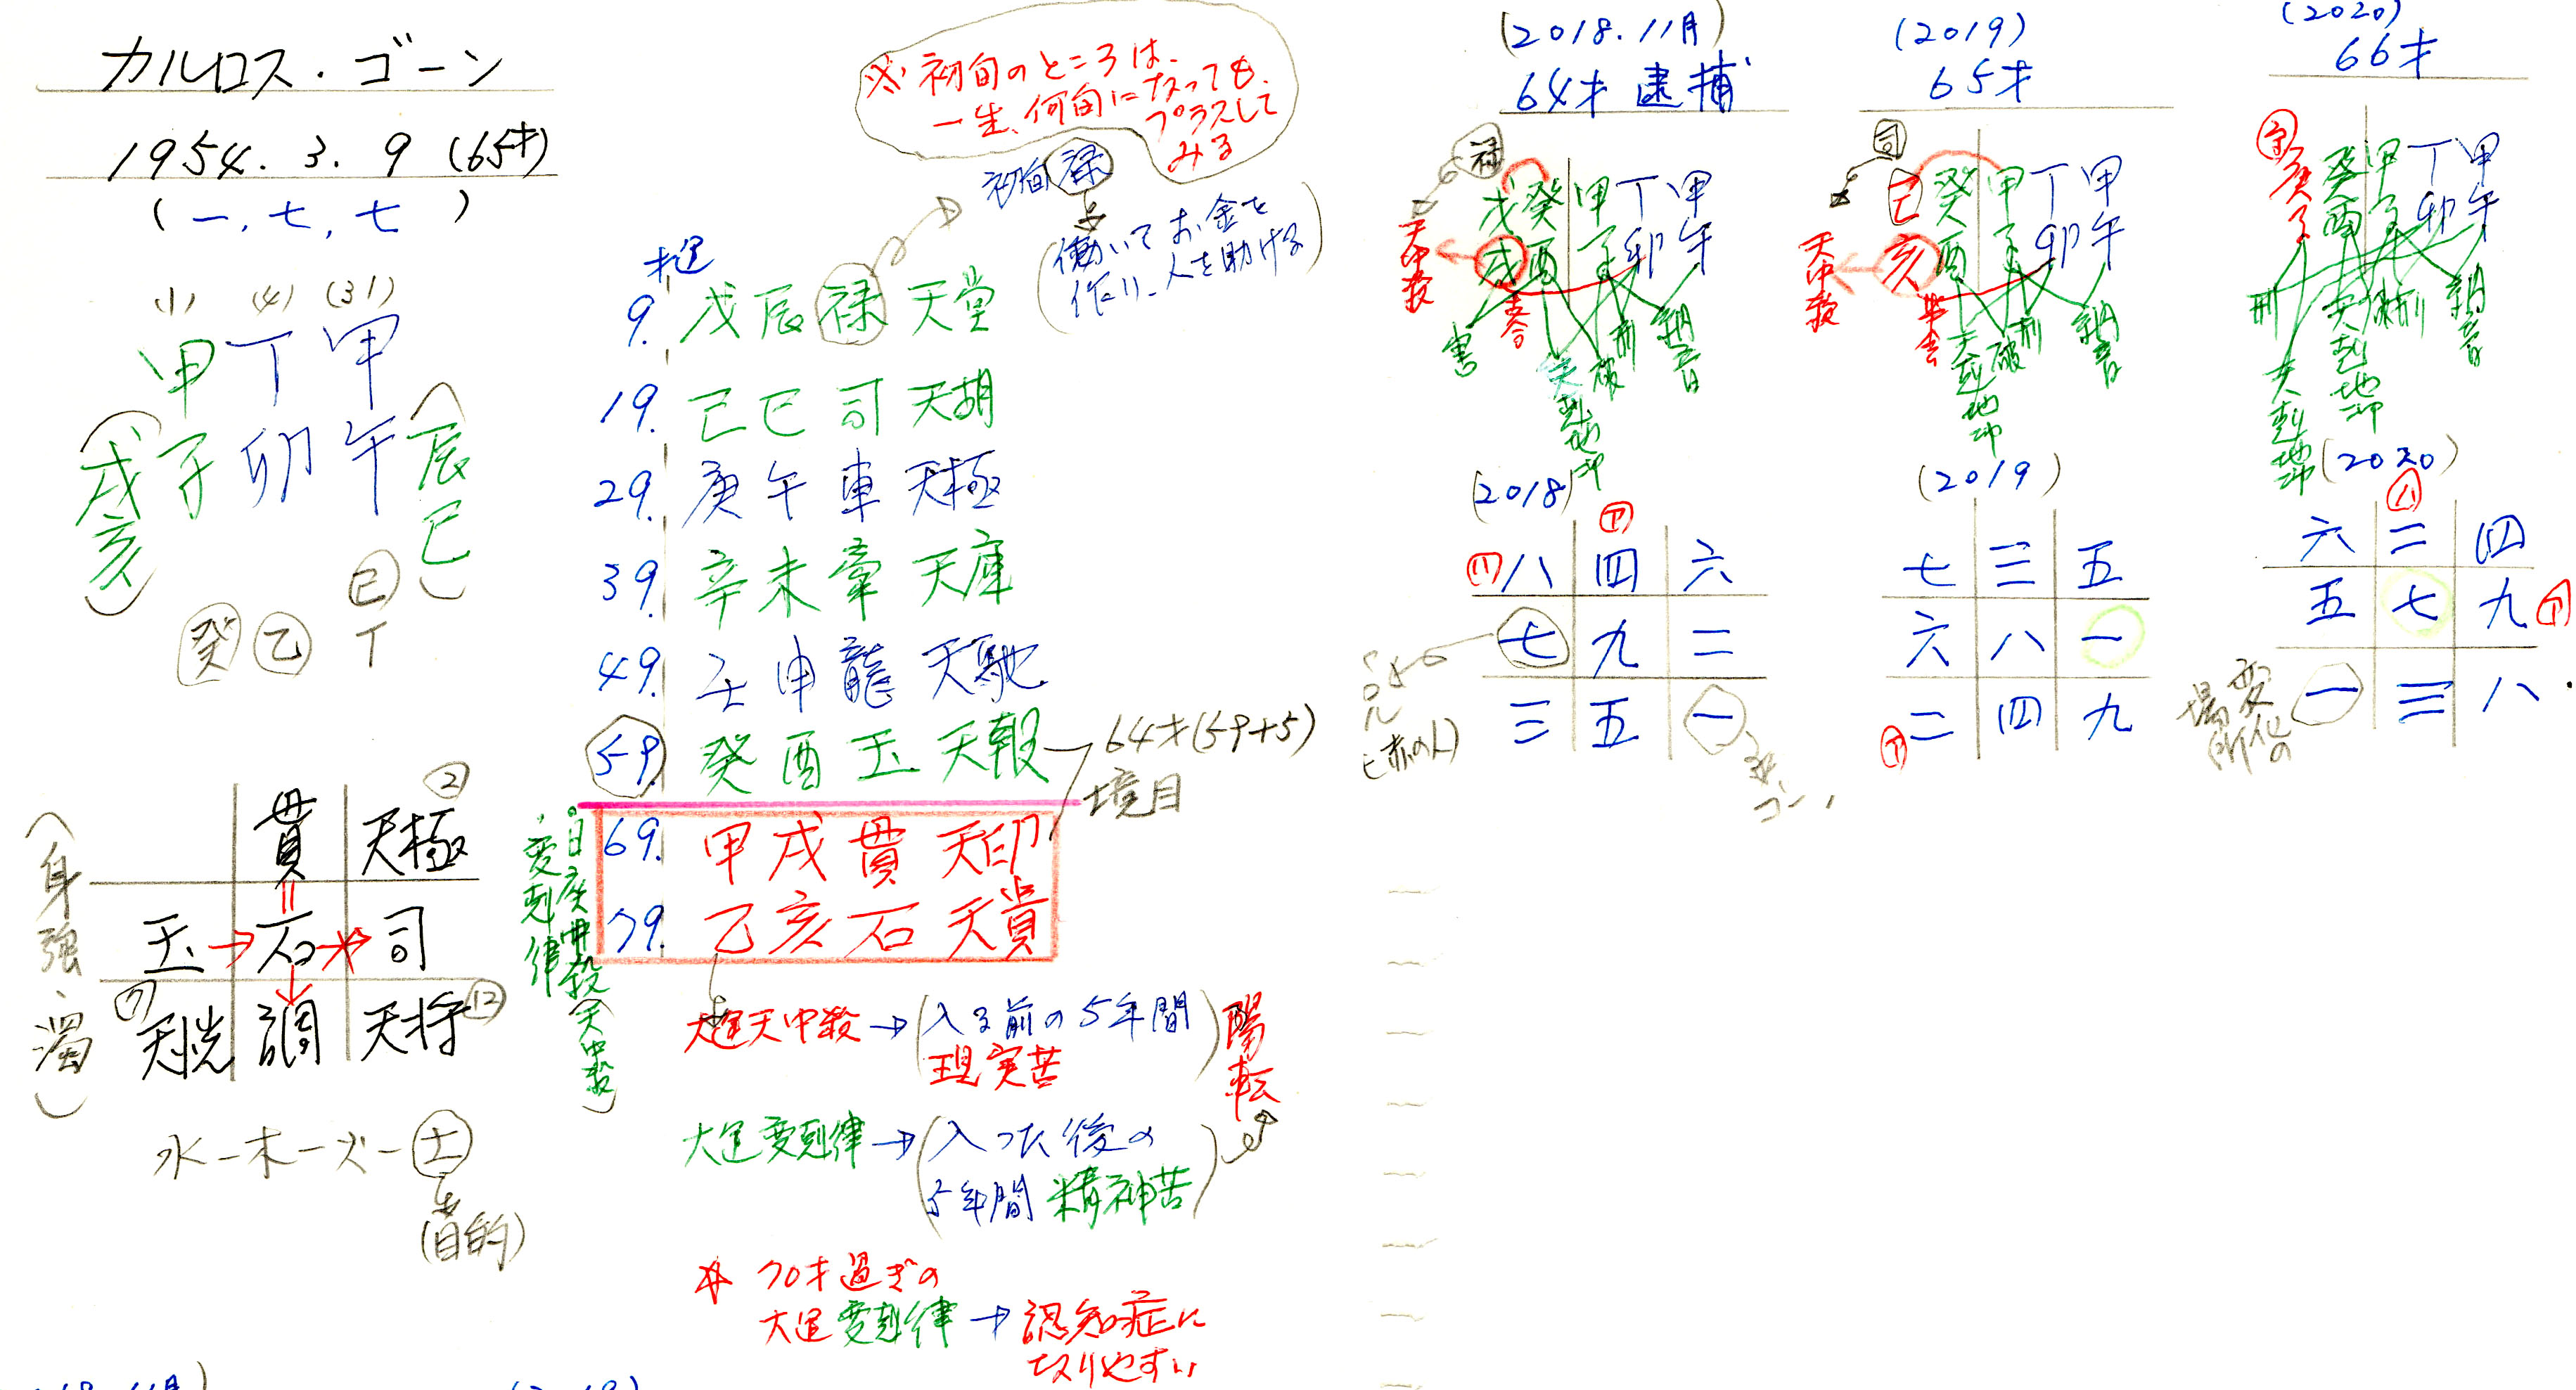 カルロス・ゴーン
1954. 3. 9 (65才)
(一, 七, 七)
(1) (4) (31)
甲 丁 甲
(戌亥) 子 卯 午 (辰巳)
癸 乙 丁
己
貫 天極 ②
玉 → 石 → 司
⑦ 天恍 調 天将 ⑫
(身強、濁)
水 - 木 - 火 - 土
(目的)
※ 初旬のところは、
一生、何旬になっても、
プラスして
みる
初旬 禄
(働いて お金を
作り、人を助ける)
大運
9. 戊 辰 禄 天堂
19. 己 巳 司 天胡
29. 庚 午 車 天極
39. 辛 未 牽 天庫
49. 壬 申 龍 天馳
59. 癸 酉 玉 天報
64才 (59+5)
境目
69. 甲 戌 貫 天印
79. 乙 亥 石 天貴
。日座中殺(天中殺)
・変剋律
大運天中殺 → (入る前の5年間
現実苦)
陽転
大運変剋律 → (入った後の
5年間 精神苦)
☆ 70才過ぎの
大運変剋律 → 認知症に
なりやすい
(2018. 11月)
64才 逮捕
禄
戊 癸 甲 丁 甲
戌 酉 子 卯 午
天中殺
害
支合
天剋地冲
破
刑
納音
(2018)
八 四 六
七 九 二
三 五 一
(2019)
65才
司
己 癸 甲 丁 甲
亥 酉 子 卯 午
天中殺
半会
天剋地冲
破
刑
納音
(2019)
七 三 五
六 八 一
二 四 九
(2020)
66才
庚 癸 甲 丁 甲
子 酉 子 卯 午
刑
天剋地冲
天剋地冲
刑
納音
(2020)
六 二 四
五 七 九
一 三 八
変化の
場所